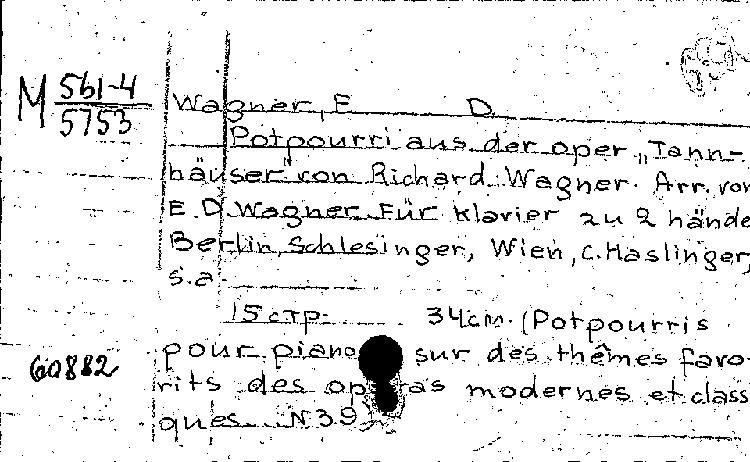 M 561-4
5753
Wagner, E D.
Potpourri aus der oper „Tann-
häuser" von Richard Wagner. Arr. von
E. D. Wagner Für Klavier zu 2 hände
Berlin, Schlesinger, Wien, C. Haslinger,
s.a.
15 стр. 34cm. (Potpourris
60882
pour piano sur des thêmes favo-
rits des opéras modernes et class
ques. N39)